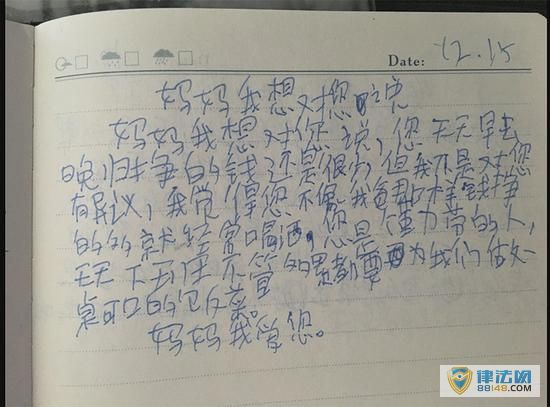 Date: 12.15
妈妈我想对您说
妈妈我想对你说,您天天早去
晚归挣的钱还是很少但我不是对您
有异议,我觉得您不像我爸那样钱挣
的多就经常喝酒,您是 力劳的人,
天天下班不管多累都要为我们做一
桌可口的饭菜。
妈妈我爱您。
律法网
88148.COM